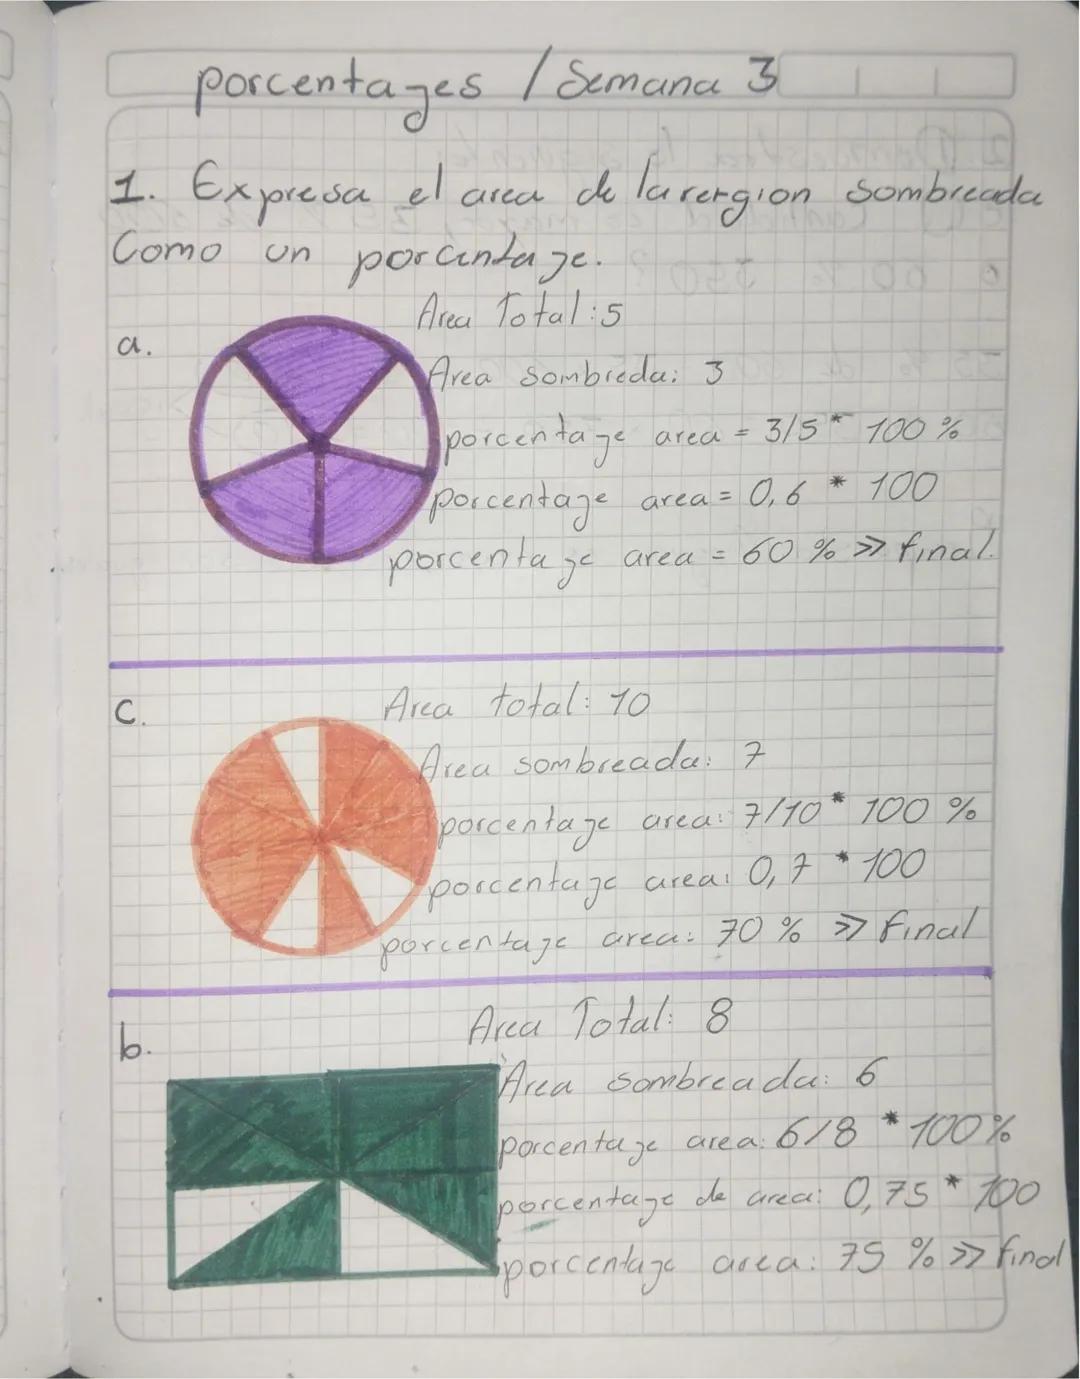 porcentages / Semana 3
1. Expresa el area de la rergion sombreada
Como un porcentage.
a.
Area Total: 5
Area sombreda: 3
porcentage area = 3/5 * 100 %
porcentage area = 0,6 * 100
porcentage area = 60 % >> final.
c.
Area total: 10
Area sombreada: 7
porcentage area: 7/10 * 100 %
porcentage area: 0,7 * 100
porcentage area: 70 % >> final
b.
Area Total: 8
Area sombreada: 6
porcentage area: 6/8 * 100%
porcentage de area: 0,75 * 100
porcentage area: 75 % >> final